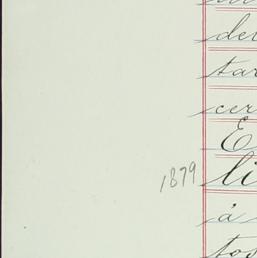 der
tar
cer
E
1879 li
á
tos